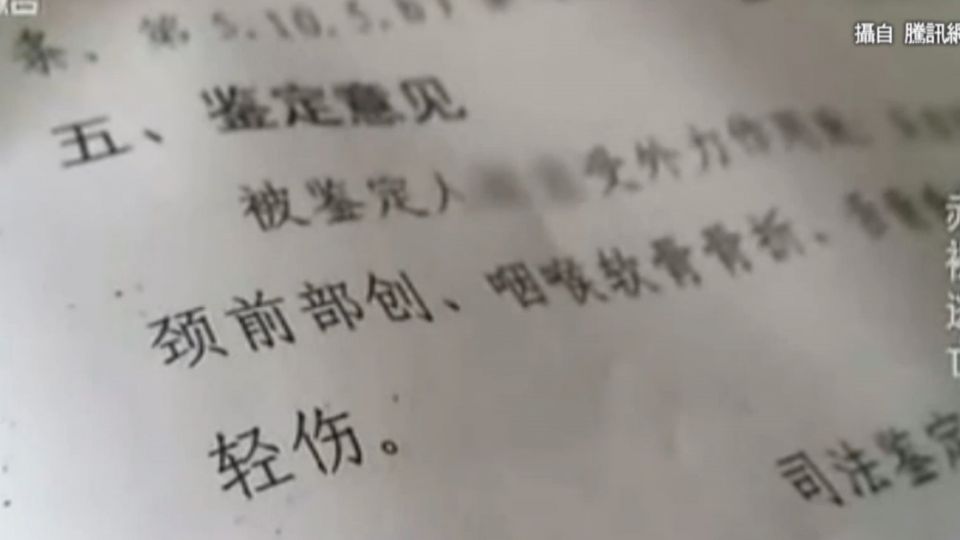 攝自 騰訊網
条、第5.10.5.
五、鉴定意见
被鉴定人 受外力作用
颈前部创、咽喉软骨骨折、
轻伤。
司法鉴定